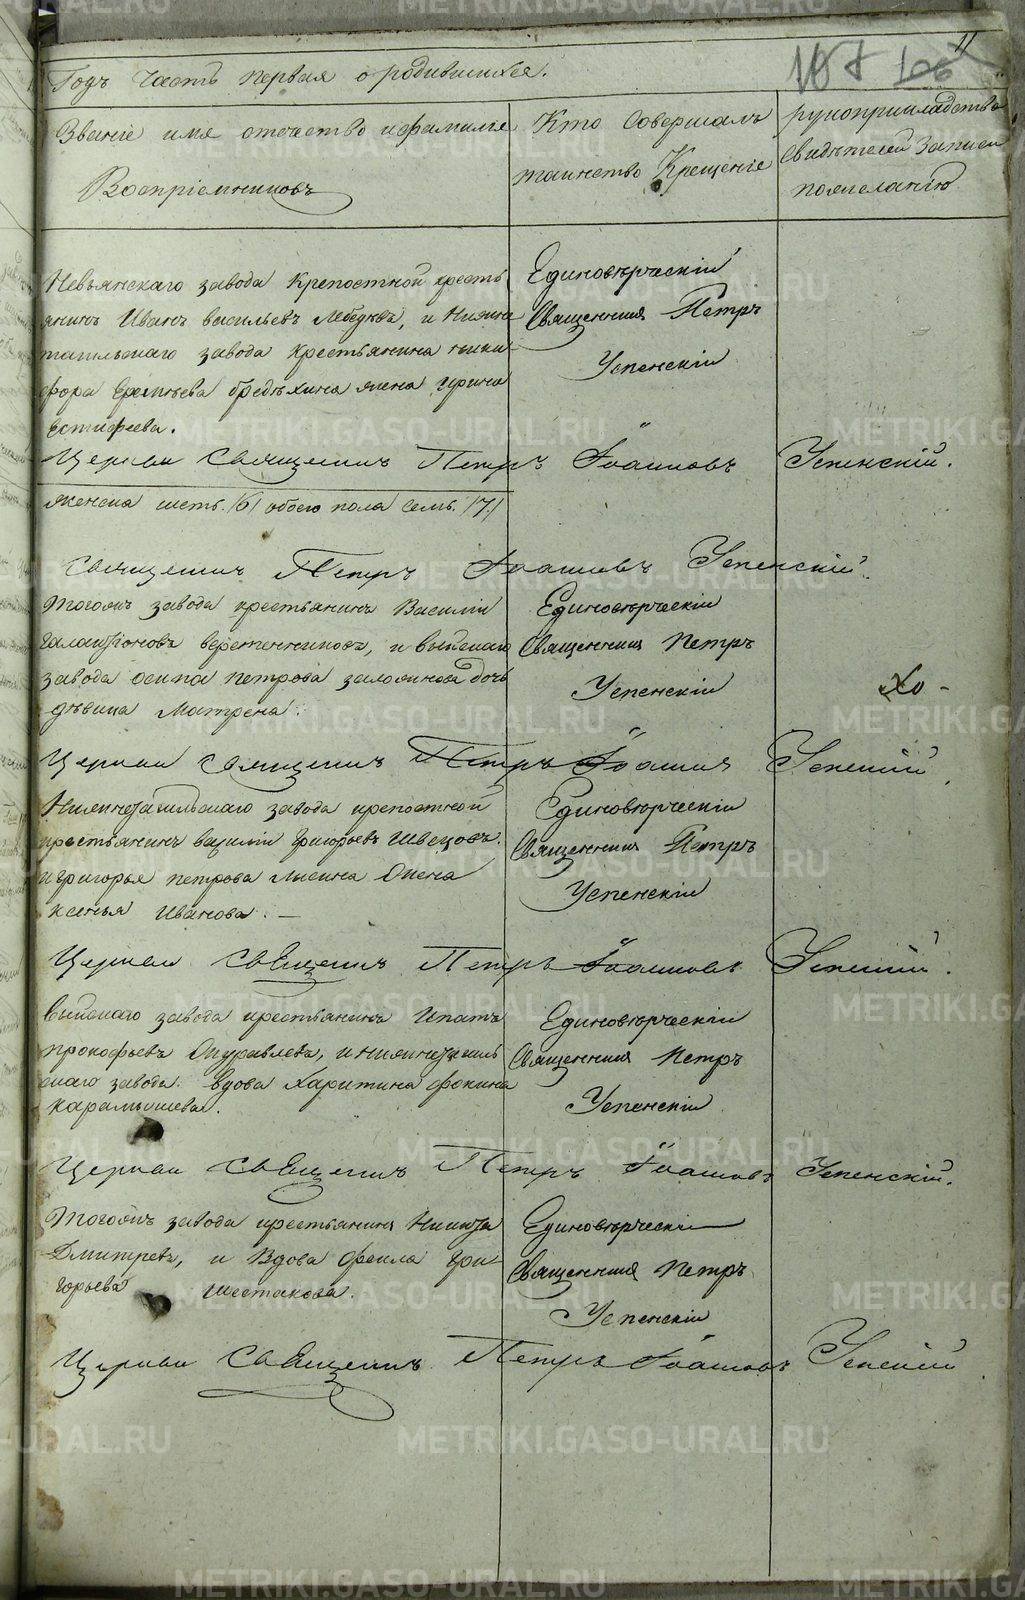 11
Годъ Часть первая о родившихся.
Званіе имя отечество и фамилія
Воспріемниковъ
Кто Совершалъ
таинство Крещеніе
рукоприкладство
Свидѣтелей записи
пожеланію
Невьянскаго завода Крепостной кресть
янинъ Иванъ васильевъ Лебедквъ, и Нижне
тагильскаго завода Крестьянина ники
фора бредѣхина жена ирина
Естифеева.
Единовѣрческій
Священникъ Петръ
Успенскій
Церкви Священникъ Петръ Іоанновъ Успенскій.
женска шесть /6/ обоего пола семь /7/
Священникъ Петръ Іоанновъ Успенскій.
Тогожъ завода крестьянинъ Василій
Галактіоновъ веретенниковъ, и выйскаго
завода осипа петрова дочь
дѣвица Матрена.
Единовѣрческій
Священникъ Петръ
Успенскій
Хо-
Церкви Священникъ Петръ Іоаннъ Успенскій.
Нижнетагильскаго завода крепостной
крестьянинъ василій григорьевъ Швецовъ.
и григорья петрова жена
ксенья Иванова. —
Единовѣрческій
Священникъ Петръ
Успенскій
Церкви Священникъ Петръ Іоанновъ Успенскій.
Выйскаго завода крестьянинъ Ипатъ
прокофьевъ и нижнетагиль
скаго завода. вдова Харитина фокина
карамышева.
Единовѣрческій
Священникъ Петръ
Успенскій
Церкви Священникъ Петръ Іоанновъ Успенскій.
Тогожъ завода крестьянинъ Никита
Дмитревъ, и Вдова Офекла гри
горьева Шестакова.
Единовѣрческій
Священникъ Петръ
Успенскій
Церкви Священникъ Петръ Іоанновъ Успенскій
METRIKI.GASO-URAL.RU